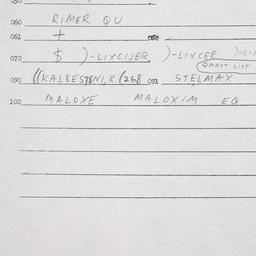 060 RIMER QU
061 +
070 $ )-LIXCIJER, )-LIXCEP )-LIX
QMART LIST
090 ((KAL8ES78N1,K(268 091 STELMAX
100 MALOXE MALOXIM EQ